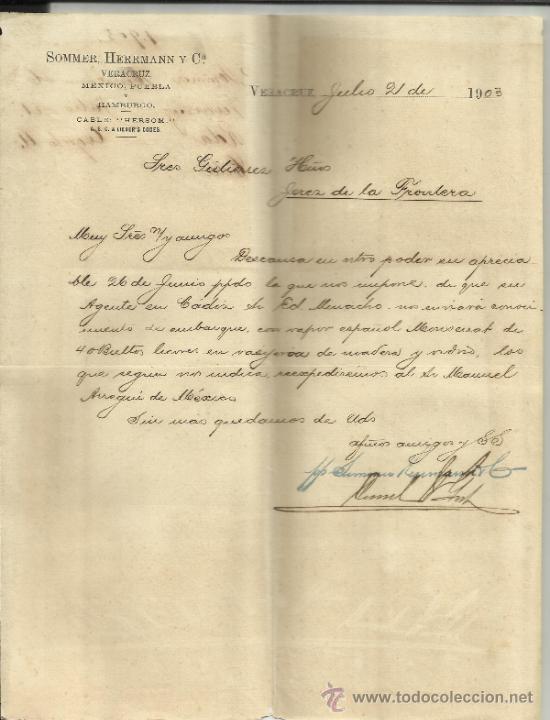 SOMMER, HERRMANN Y Cª
VERACRUZ
MEXICO, PUEBLA
Y
HAMBURGO.
CABLE: "HERSOM."
A. B. C. & LIEBER'S CODES.
VERACRUZ Julio 21 de 1903
Sres Gutierrez Hños
Jerez de la Frontera
Muy Srēs n/ y amigos
Descansa en ntro poder su aprecia-
ble 26 de Junio ppdo la que nos impone de que su
Agente en Cadiz Sr Ed. Menacho nos enviará conoci-
miento de embarque, con vapor español Monserrat de
40 Bultos licores en vasijeria de madera y vidrio, los
que segun nos indica, reexpediremos al Sr Manuel
Arregui de México
Sin mas quedamos de Uds
afmos amigos y SS
pp Sommer Herrmann y C
todocoleccion
www.todocoleccion.net